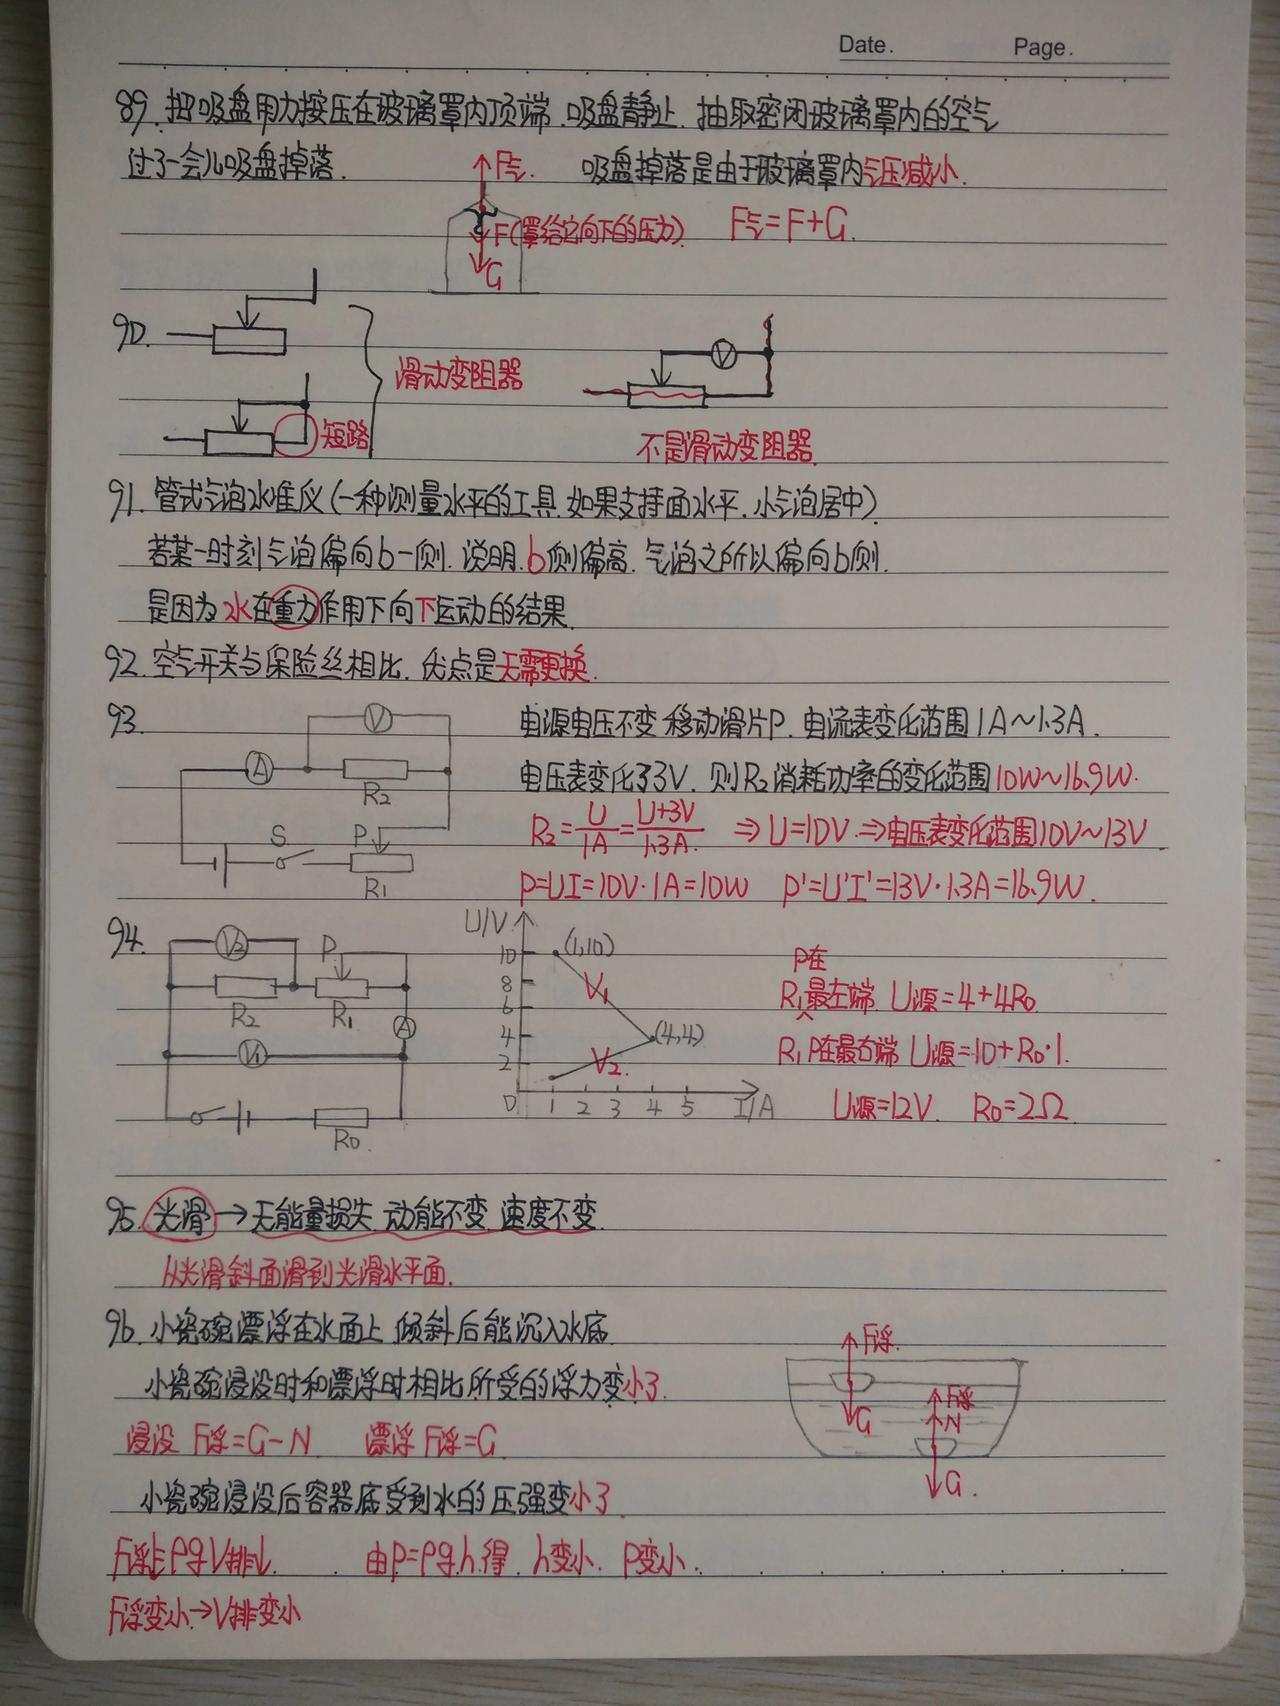 Date. Page.
89. 把吸盘用力按压在玻璃罩内顶端.吸盘静止.抽取密闭玻璃罩内的空气
过了一会儿吸盘掉落. F气. 吸盘掉落是由于玻璃罩内气压减小.
F(罩给它向下的压力) F气=F+G.
G
90.
滑动变阻器 V
短路 不是滑动变阻器.
91. 管式气泡水准仪(一种测量水平的工具.如果支持面水平.小气泡居中)
若某一时刻气泡偏向b一侧.说明.b侧偏高.气泡之所以偏向b侧.
是因为水在重力作用下向下运动的结果.
92. 空气开关与保险丝相比.优点是无需更换.
93. V 电源电压不变 移动滑片P. 电流表变化范围1A~1.3A.
A R2 电压表变化了3V. 则R2消耗功率的变化范围10W~16.9W.
S P R2=U/1A=U+3V/1.3A ⇒U=10V ⇒电压表变化范围10V~13V.
R1 P=UI=10V·1A=10W P'=U'I'=13V·1.3A=16.9W.
94. V2 P U/V (1,10) P在
R2 R1 10 8 V1 R1最左端 U源=4+4R0
A 6 4 (4,4)
V1 2 V2. R1P在最右端 U源=10+R0·1.
R0. 0 1 2 3 4 5 I/A U源=12V. R0=2Ω.
95. 光滑→无能量损失.动能不变.速度不变.
从光滑斜面滑到光滑水平面.
96. 小瓷碗漂浮在水面上 倾斜后能沉入水底 F浮.
小瓷碗浸没时和漂浮时相比所受的浮力变小了. F浮 N
浸没 F浮=G-N 漂浮 F浮=G. G G.
小瓷碗浸没后容器底受到水的压强变小了
F浮↓=ρgV排↓. 由p=ρg.h.得. h变小. P变小.
F浮变小.→V排变小